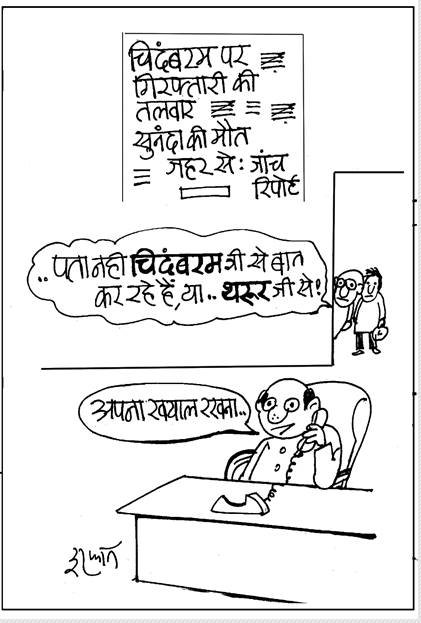 चिदंबरम पर
गिरफ्तारी की
तलवार
सुनंदा की मौत
जहर से: जांच
रिपोर्ट
..पता नहीं चिदंबरम श्री से बात
कर रहे हैं, या.. थरूर जी से!
अपना खयाल रखना..
इरफान